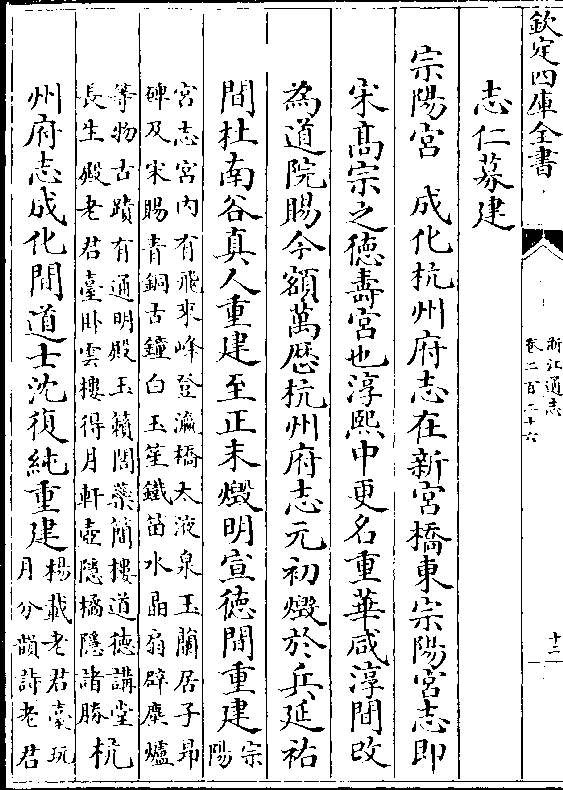 欽定四庫全書
浙江通志
卷二百二十六
十三
志仁募建
宗陽宮　成化杭州府志在新宮橋東宗陽宮志即
宋髙宗之德壽宮也淳熙中更名重華咸淳間改
為道院賜今額萬厯杭州府志元初燬於兵延祐
間杜南谷真人重建至正末燬明宣德間重建宗
陽
宮志宮内有飛來峰登瀛橋太液泉玉蘭居子昻
碑及宋賜青銅古鐘白玉笙鐵笛水晶扇辟塵爐
等物古蹟有通明殿玉籟閣藥簡樓道德講堂
長生殿老君臺卧雲樓得月軒壺隱橘隱諸勝杭
州府志成化間道士沈復純重建楊載老君臺玩
月分韻詩老君